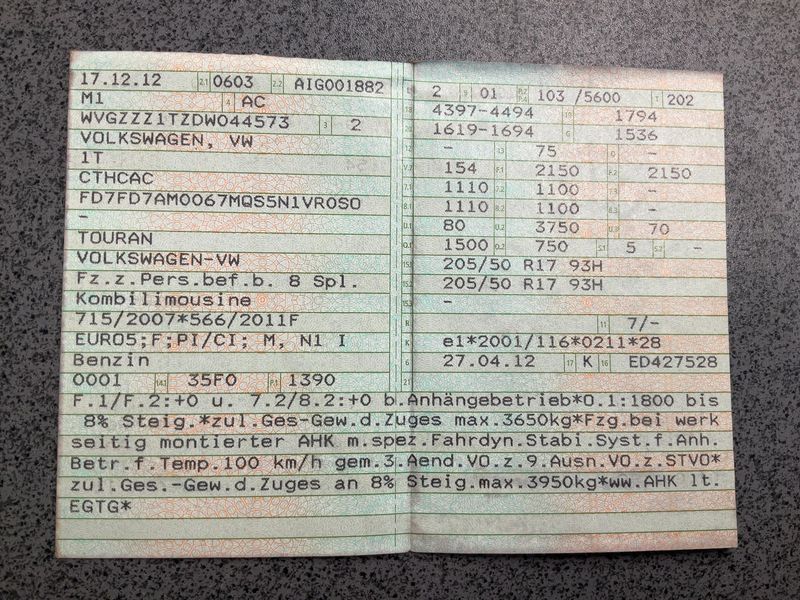 17.12.12 2.1 0603 2.2 AIG001882
M1 4 AC
WVGZZZ1TZDW044573 3 2
VOLKSWAGEN, VW
1T
CTHCAC
FD7FD7AM0067MQS5N1VR0S0
-
TOURAN
VOLKSWAGEN-VW
Fz.z.Pers.bef.b. 8 Spl.
Kombilimousine
715/2007*566/2011F
EURO5;F;PI/CI; M, N1 I
Benzin
0001 14.1 35F0 P.1 1390
L 2 9 01 P.2 P.4 103 /5600 T 202
18 4397-4494 19 1794
20 1619-1694 G 1536
12 - 13 75 Q -
V.7 154 F.1 2150 F.2 2150
7.1 1110 7.2 1100 -
8.1 1110 8.2 1100 -
U.1 80 U.2 3750 U.3 70
O.1 1500 O.2 750 S.1 5 S.2 -
15.1 205/50 R17 93H
15.2 205/50 R17 93H
15.3 -
R 11 7/-
K e1*2001/116*0211*28
6 27.04.12 17 K 16 ED427528
21
F.1/F.2:+0 u. 7.2/8.2:+0 b.Anhängebetrieb*O.1:1800 bis
8% Steig.*zul.Ges-Gew.d.Zuges max.3650kg*Fzg.bei werk
seitig montierter AHK m.spez.Fahrdyn.Stabi.Syst.f.Anh.
Betr.f.Temp.100 km/h gem.3.Aend.VO.z.9.Ausn.VO.z.STVO*
zul.Ges.-Gew.d.Zuges an 8% Steig.max.3950kg*ww.AHK lt.
EGTG*